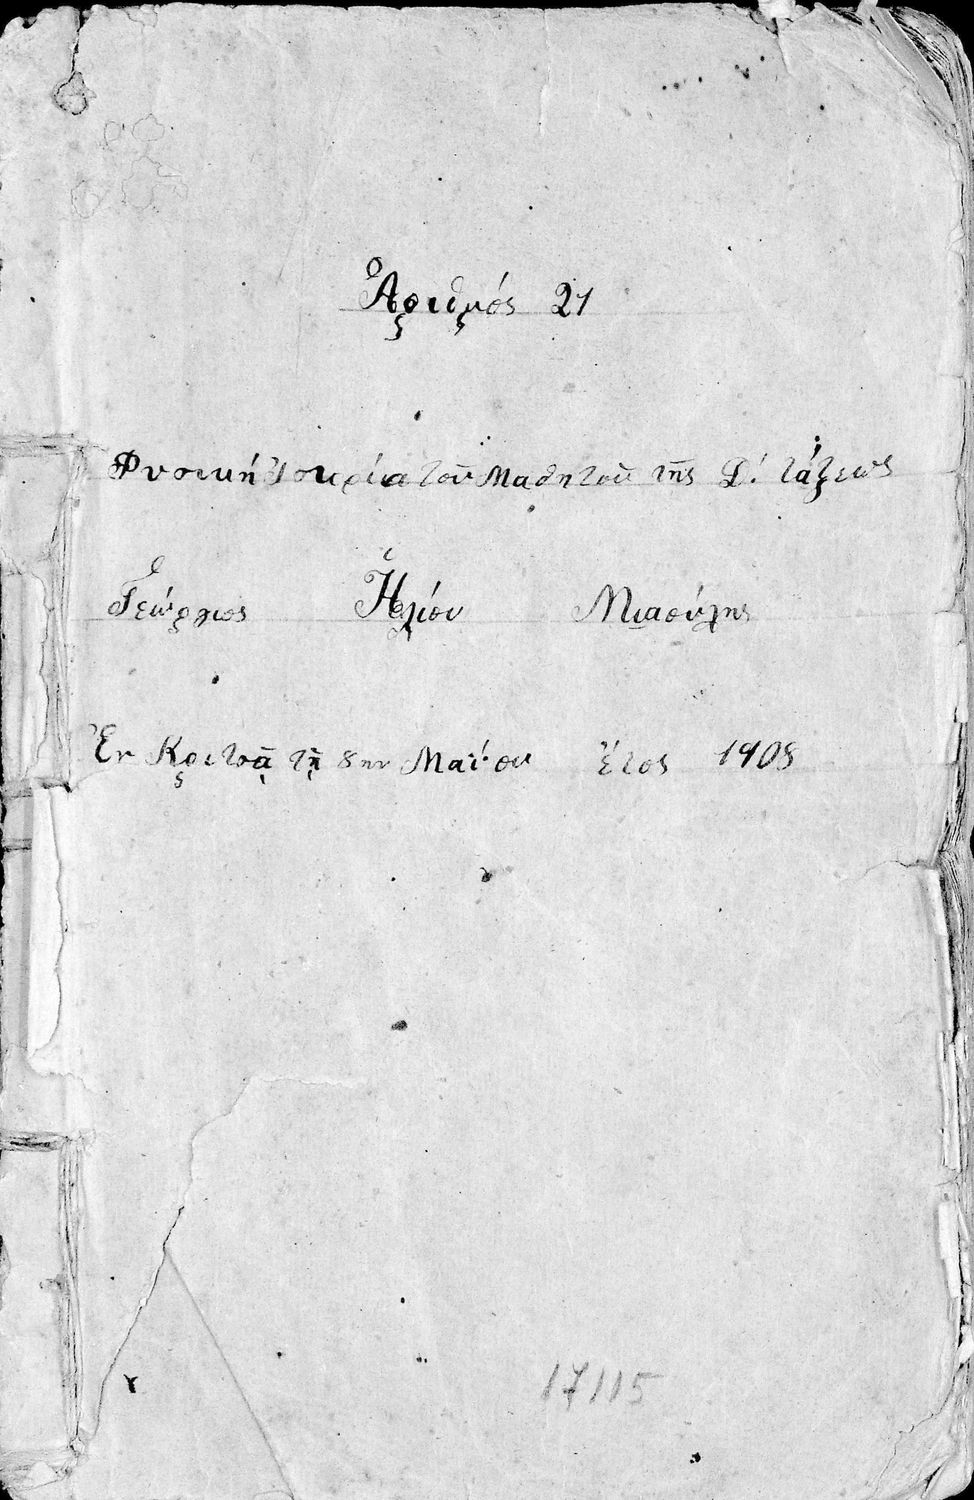 Ἀριθμός 21
Φυσική Ἱστορία τοῦ Μαθητοῦ τῆς Δ΄. τάξεως
Γεώργιος Ἡλίου Μιαούλης
Ἐν Κριτσᾷ τῇ 8ην Μαΐου Ἔτος 1908
17115